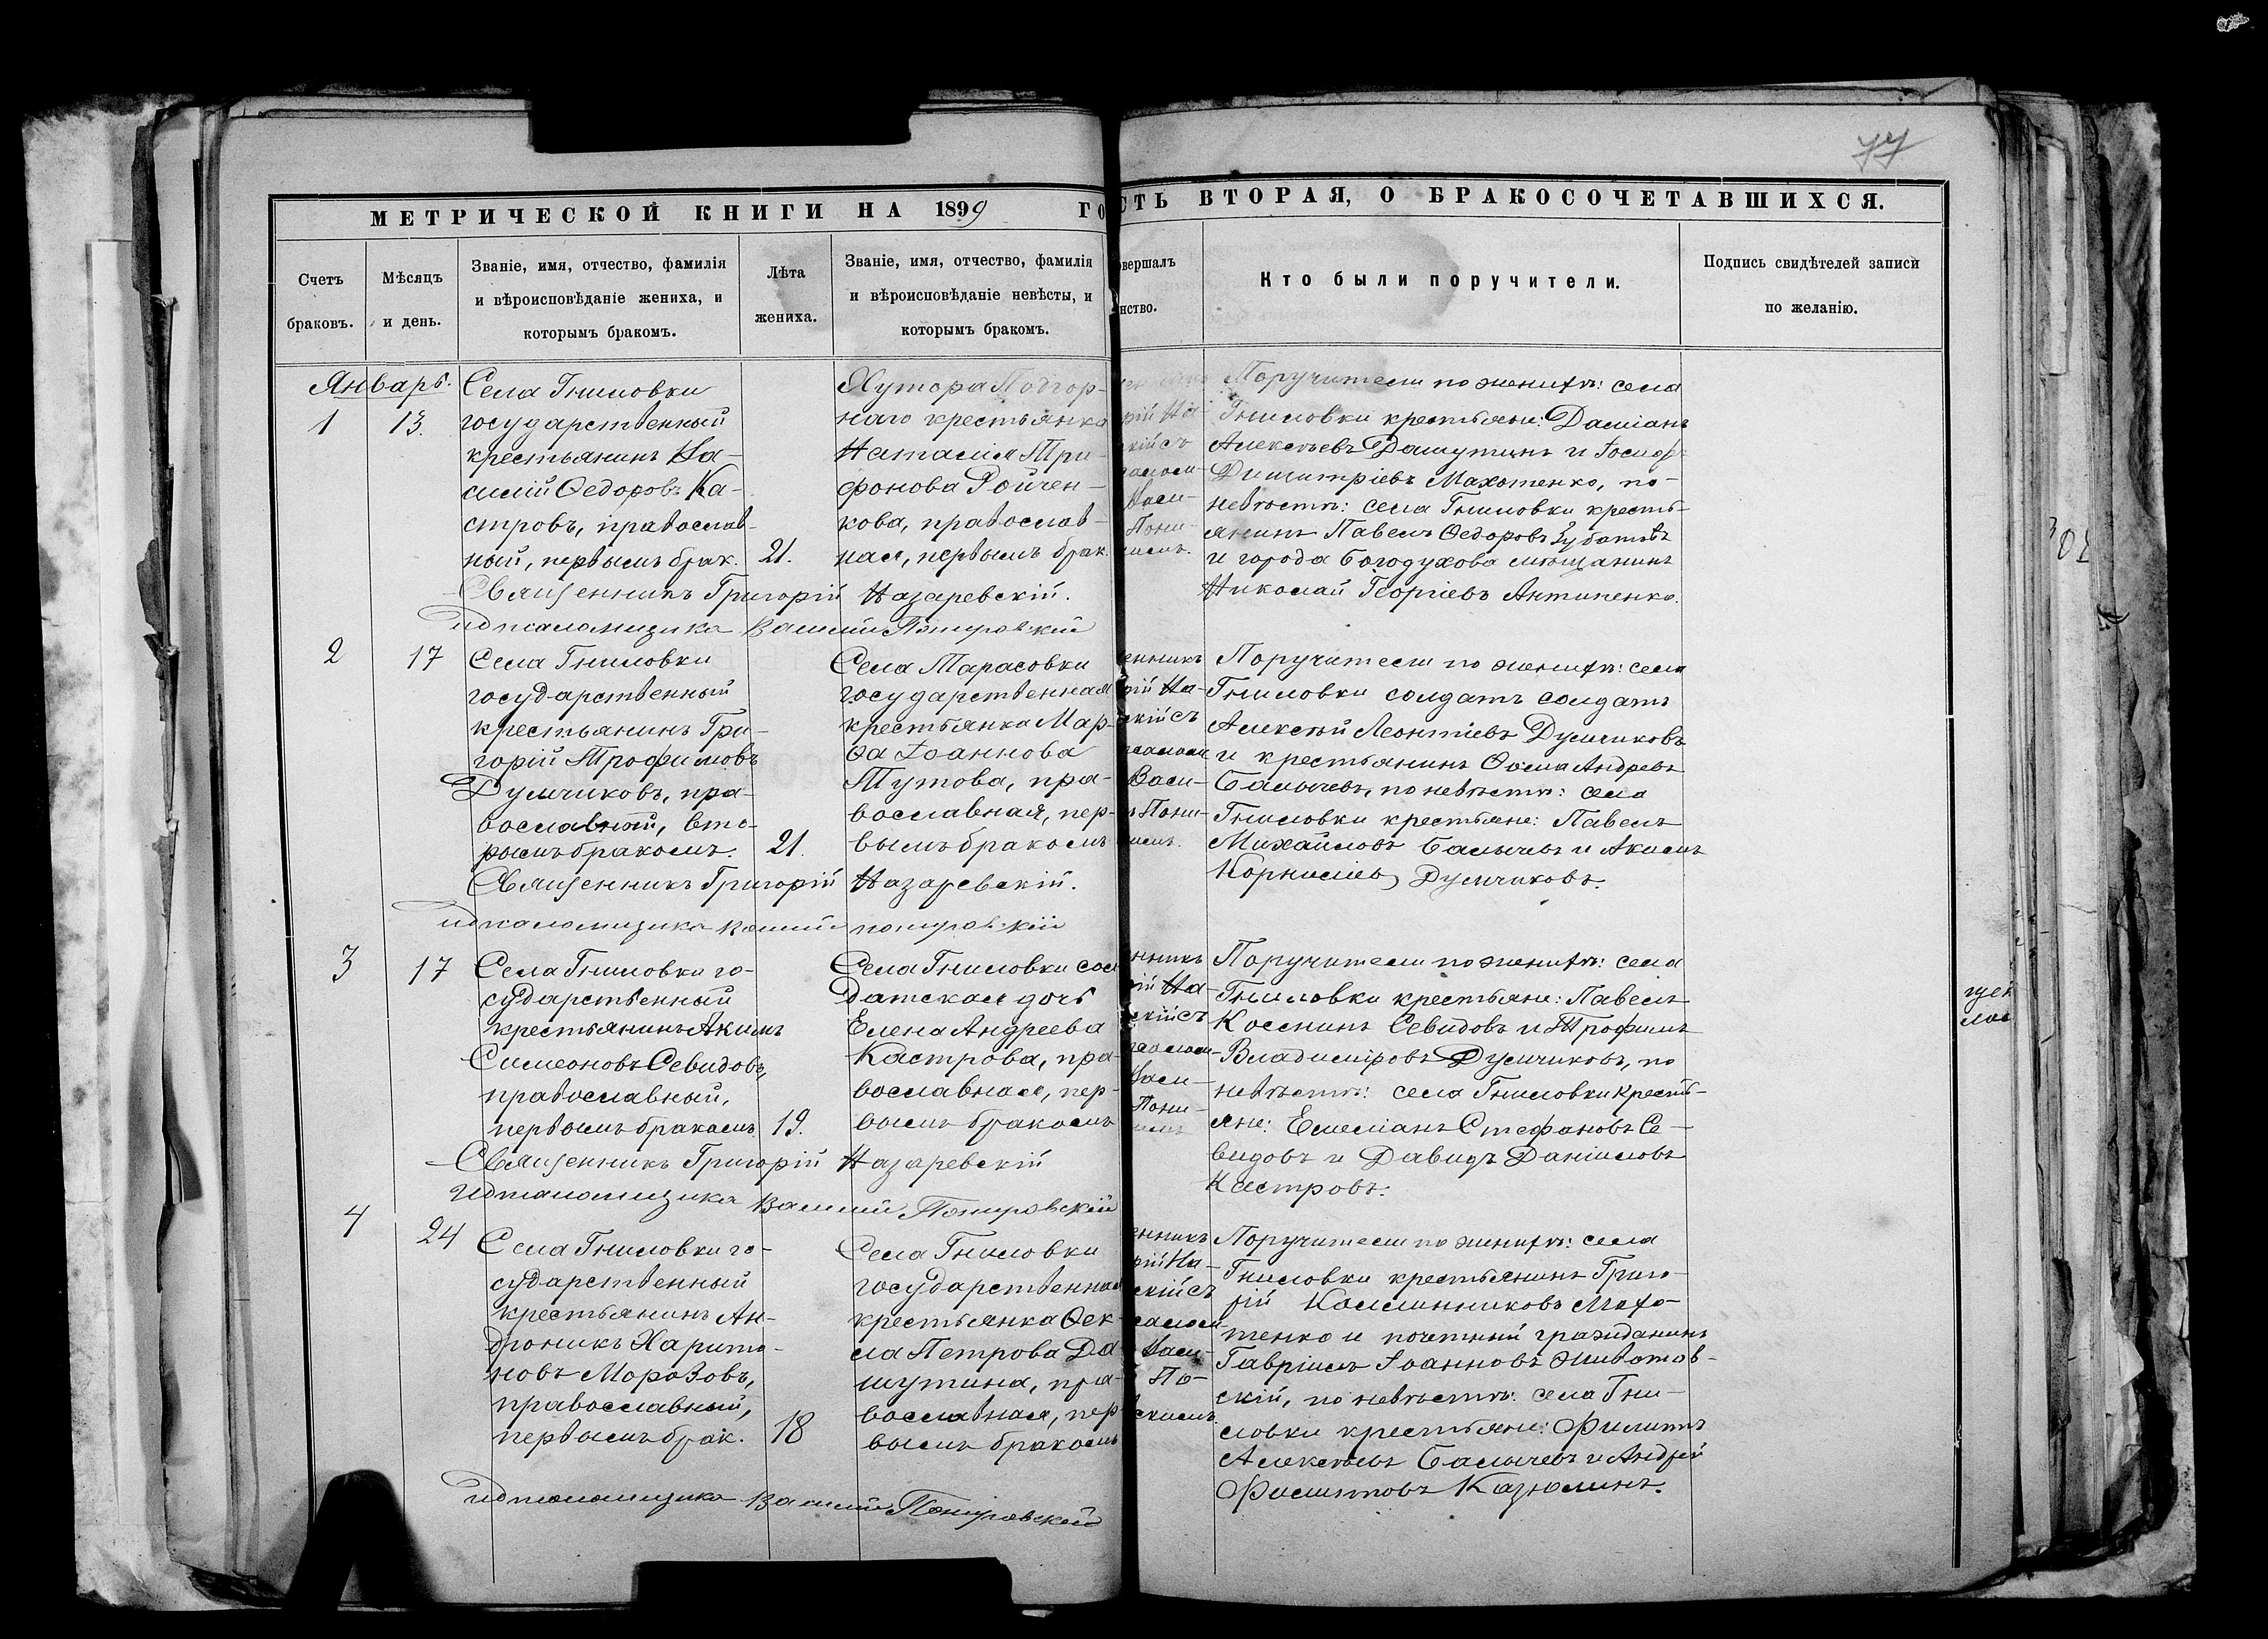 77
МЕТРИЧЕСКОЙ КНИГИ НА 1899 ГО
СТЬ ВТОРАЯ, О БРАКОСОЧЕТАВШИХСЯ.
Счетъ
браковъ.
Мѣсяцъ
и день.
Званіе, имя, отчество, фамилія
и вѣроисповѣданіе жениха, и
которымъ бракомъ.
Лѣта
жениха.
Званіе, имя, отчество, фамилія
и вѣроисповѣданіе невѣсты, и
которымъ бракомъ.
овершалъ
нство.
Кто были поручители.
Подпись свидѣтелей записи
по желанію.
Январь.
1
13.
Села Гниловки
государственный
крестьянинъ Ва-
силій Ѳедоровъ Ка-
стровъ, православ-
ный, первымъ брак.
21.
Хутора Подгор-
наго крестьянка
Наталія Три-
фонова Ройчен-
кова, православ-
ная, первымъ брак.
рій На-
скій съ
Васи-
Пони-
Поручители по женихѣ: села
Гниловки крестьяне: Даміанъ
Алексѣевъ Дашутинъ и Іосифъ
Димитріевъ Махотенко, по
невѣстѣ: села Гниловки кресть-
янинъ Павелъ Ѳедоровъ Зубатовъ
и города Богодухова мѣщанинъ
Николай Георгіевъ Антипенко.
Священникъ Григорій Назаревскій.
И д псаломщика Василій
2
17
Села Гниловки
государственный
крестьянинъ Гри-
горій Трофимовъ
Думчиковъ, пра-
вославный, вто-
рымъ бракомъ.
21.
Села Тарасовки
государственная
крестьянка Мар-
ѳа Іоаннова
Тутова, пра-
вославная, пер-
вымъ бракомъ
енникъ
рій На-
скій съ
Васи-
Пони-
Поручители по женихѣ: села
Гниловки солдатъ солдатъ
Алексѣй Леонтіевъ Думчиковъ
и крестьянинъ Ѳома Андреевъ
Балычевъ, по невѣстѣ: села
Гниловки крестьяне: Павелъ
Михайловъ Балычевъ и Акимъ
Корниліевъ Думчиковъ.
Священникъ Григорій Назаревскій.
И д псаломщика Василій
3
17
Села Гниловки го-
сударственный
крестьянинъ Акимъ
Симеоновъ Севидовъ,
православный,
первымъ бракомъ
19.
Села Гниловки сол
датская дочь
Елена Андреева
Кастрова, пра-
вославная, пер-
вымъ бракомъ
нникъ
рій На-
скій съ
Васи-
Пони-
Поручители по женихѣ: села
Гниловки крестьяне: Павелъ
Косминъ Севидовъ и Трофимъ
Владиміровъ Думчиковъ, по
невѣстѣ: села Гниловки кресть-
яне: Емеліанъ Стефановъ Се-
видовъ и Давидъ Даніиловъ
Кастровъ.
Священникъ Григорій Назаревскій
И д псаломщика Василій
4
24
Села Гниловки го-
сударственный
крестьянинъ Ан-
дроникъ Харито-
новъ Морозовъ,
православный,
первымъ брак.
18
Села Гниловки
государственная
крестьянка Ѳек-
ла Петрова Да-
шутина, пра-
вославная, пер-
вымъ бракомъ
енникъ
рій На-
скій съ
Васи-
По-
скимъ.
Поручители по женихѣ: села
Гниловки крестьянинъ Григо-
рій Махо-
тенко и почетный гражданинъ
Гавріилъ Іоанновъ Животов-
скій, по невѣстѣ: села Гни-
ловки крестьяне: Филиппъ
Алексѣевъ Балычевъ и Андрей
Филипповъ Казюлинъ.
И д псаломщика Василій